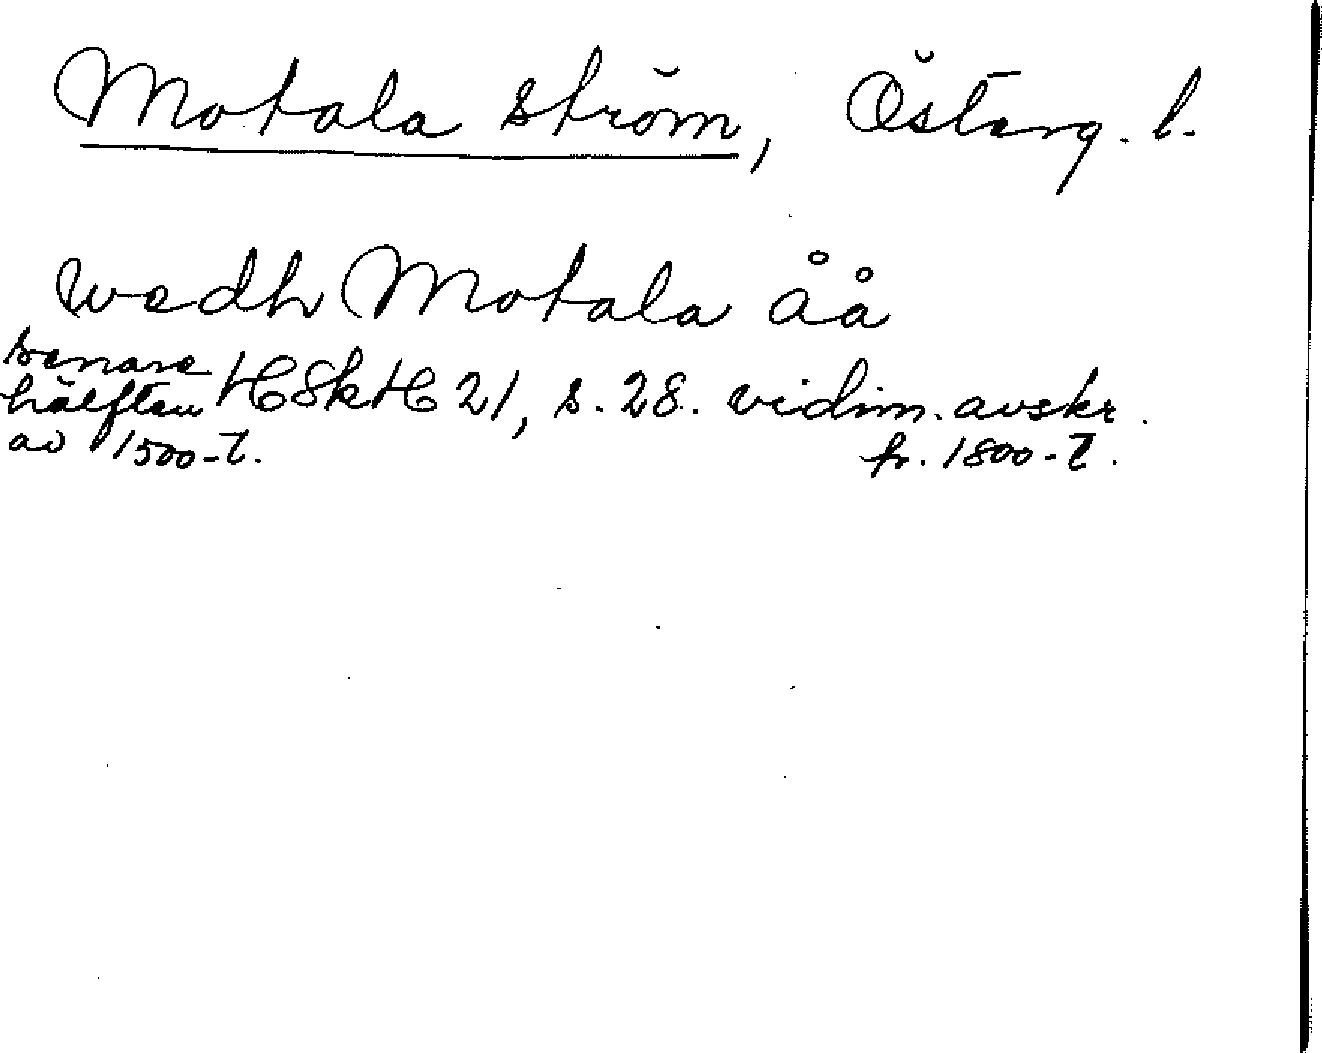 Motala ström, Österg. l.
wedh Motala åå
senare
hälften HSkH 21, s. 28. vidim. avskr.
av 1500-t. fr. 1800-t.